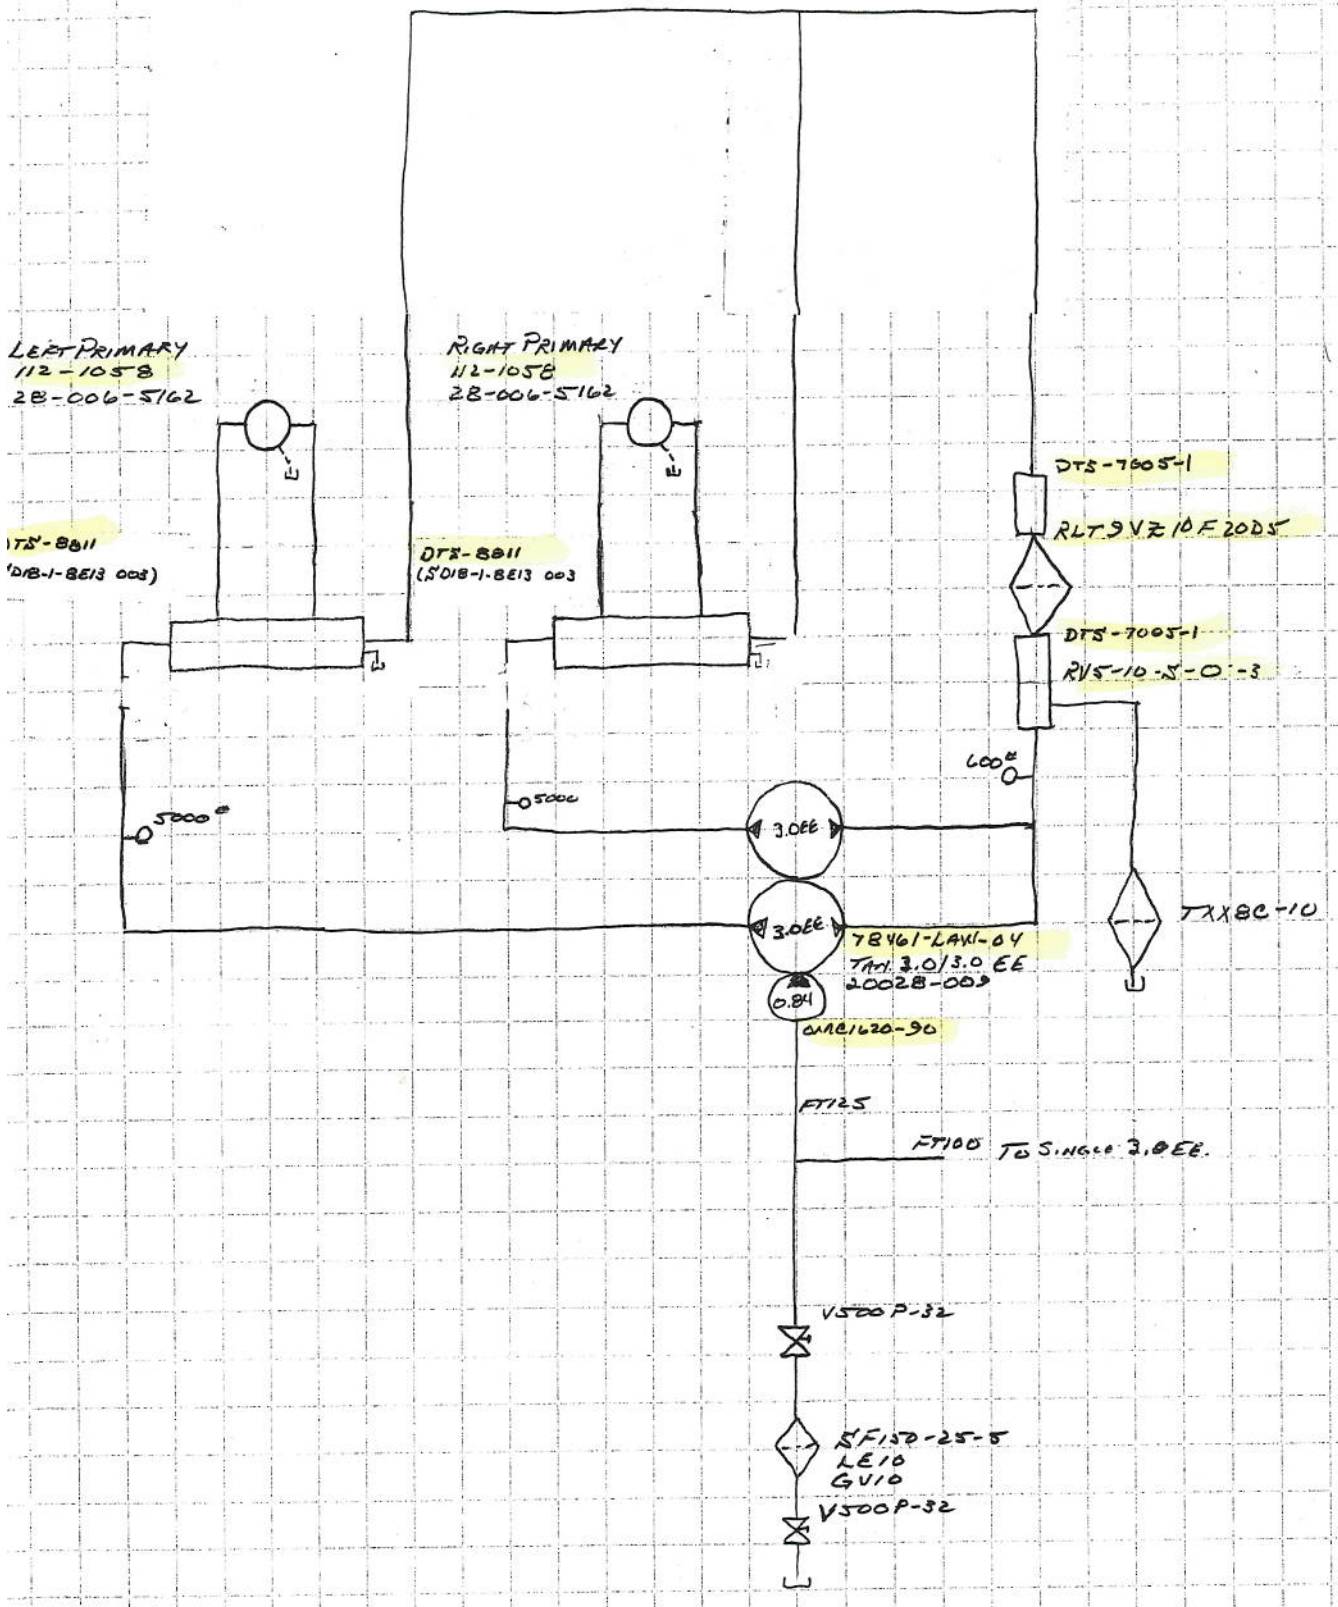 LEFT PRIMARY
112-1058
28-006-5162
RIGHT PRIMARY
112-1058
28-006-5162
DTS-7605-1
RLT9VZ10F20D5
DTS-8811
(SD18-1-8E13 003)
DTS-8811
(SD18-1-8E13 003
DTS-7005-1
RV5-10-S-0-3
600#
5000#
5000
3.0EE
3.0EE
TXX8C-10
78461-LAW-04
TAN 3.0/3.0 EE
20028-009
0.84
FT125
FT100 TO SINGLE 3.0EE.
V500P-32
SF150-25-5
LE10
GV10
V500P-32